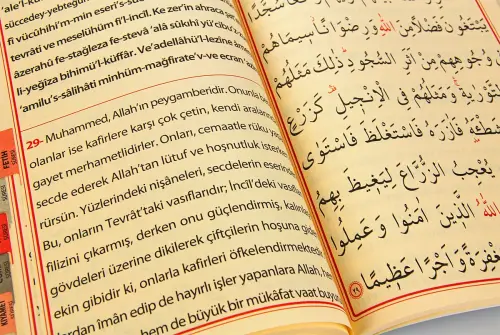 süccedey-yebtegu
fî vucûhihim-min eseri's-sü
tevrâti ve meselühüm fi'l-incîl. Ke zer'in ahraca şe
âzerahû fe-stağleza fe-stevâ 'alâ sûkıhî yü'cibu'z-z
li-yeğîza bihimü'l-küffâr. Ve'adellâhü'l-lezîne âmen
'amilu's-sâlihâti minhüm-mağfirate'v-ve ecran 'a
29- Muhammed, Allah'ın peygamberidir. Onunla b
olanlar ise kafirlere karşı çok çetin, kendi araların
gayet merhametlidirler. Onları, cemaatle rüku ve
secde ederek Allah'tan lütuf ve hoşnutluk isterl
rürsün. Yüzlerindeki nişâneleri, secdelerin eserind
Bu, onların Tevrât'taki vasıflarıdır; İncîl'deki vasıfla
filizini çıkarmış, derken onu güçlendirmiş, kalınla
gövdeleri üzerine dikilerek çiftçilerin hoşuna gide
ekin gibidir ki, onlarla kafirleri öfkelendirmektedi
lardan îmân edip de hayırlı işler yapanlara Allah, he
hem de büyük bir mükâfat vaat buyur
FETİH
KIYAMET
سُجَّدًا
يَبْتَغُونَ فَضْلًا مِنَ اللّٰهِ وَرِضْوَانًا سِيمَاهُمْ
وُجُوهِهِمْ مِنْ اَثَرِ السُّجُودِ ذٰلِكَ مَثَلُهُمْ
التَّوْرٰيةِ وَمَثَلُهُمْ فِي الْاِنْجِيلِ كَزَرْعٍ
شَطْـَٔهُ فَاٰزَرَهُ فَاسْتَغْلَظَ فَاسْتَوٰى
يُعْجِبُ الزُّرَّاعَ لِيَغِيظَ بِهِمُ
اللّٰهُ الَّذِينَ اٰمَنُوا وَعَمِلُوا
مَغْفِرَةً وَاَجْرًا عَظِيمًا ٢٩